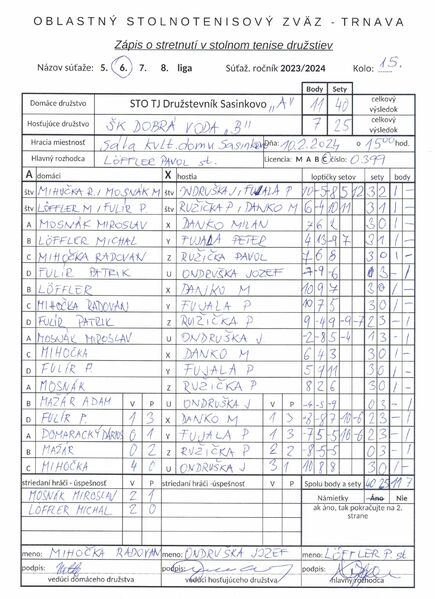 OBLASTNÝ STOLNOTENISOVÝ ZVÄZ - TRNAVA
Zápis o stretnutí v stolnom tenise družstiev
Názov súťaže: 5. 6. 7. 8. liga Súťaž. ročník 2023/2024 Kolo: 15.
Body Sety
Domáce družstvo STO TJ Družstevník Sasinkovo "A" 11 40 celkový výsledok
Hosťujúce družstvo ŠK DOBRÁ VODA "B" 7 25 celkový výsledok
Hracia miestnosť Sála kult. domu Sasinkovo Dňa: 10.2.2024 o 15 00 hod
Hlavný rozhodca LÖFFLER PAVOL st. Licencia: M A B C číslo: 0399
A domáci X hostia loptičky setov sety body
štv MIHOČKA R, MOSNÁK M štv ONDRUŠKA J, FUJALA P 10 -5 8 5 12 3 2 1 -
štv LÖFFLER M, FULÍR P. štv RUŽIČKA P, DANKO M 6 -4 10 11 3 1 1 -
A MOSNÁK MIROSLAV X DANKO MILAN 7 6 2 3 0 1 -
B LÖFFLER MICHAL Y FUJALA PETER 4 13 -9 7 3 1 1 -
C MIHOČKA RADOVAN Z RUŽIČKA PAVOL 7 6 8 3 0 1 -
D FULÍR PATRIK U ONDRUŠKA JOZEF -7 -9 -6 0 3 - 1
B LÖFFLER X DANKO M 10 9 7 3 0 1 -
C MIHOČKA RADOVAN Y FUJALA P 10 7 5 3 0 1 -
D FULÍR PATRIK Z RUŽIČKA P 9 -4 9 -9 -7 2 3 - 1
A MOSNÁK MIROSLAV U ONDRUŠKA J -2 -8 5 -4 1 3 - 1
C MIHOČKA X DANKO M 6 4 3 3 0 1 -
D FULÍR P. Y FUJALA P 5 7 11 3 0 1 -
A MOSNÁK Z RUŽIČKA P 8 2 6 3 0 1 -
B MAŽÁR ADAM V P U ONDRUŠKA J V P -4 -5 -9 0 3 - 1
D FULÍR P. 1 3 X DANKO M 1 3 -8 -8 7 10 -6 2 3 - 1
A DOMARACKÝ DÁRIUS 0 1 Y FUJALA P 1 3 -7 5 -5 10 -6 2 3 - 1
B MAŽÁR 0 2 Z RUŽIČKA P 2 2 -8 -5 -5 0 3 - 1
C MIHOČKA 4 0 U ONDRUŠKA J 3 1 10 8 8 3 0 1 -
striedaní hráči - úspešnosť V P striedaní hráči - úspešnosť V P Spolu body a sety 40 25 11 7
MOSNÁK MIROSLAV 2 1 Námietky Áno Nie
LÖFFLER MICHAL 2 0 ak áno, tak pokračujte na 2. strane
meno: MIHOČKA RADOVAN meno: ONDRUŠKA JOZEF meno: LÖFFLER P st
podpis: podpis: podpis:
vedúci domáceho družstva vedúci hosťujúceho družstva hlavný rozhodca